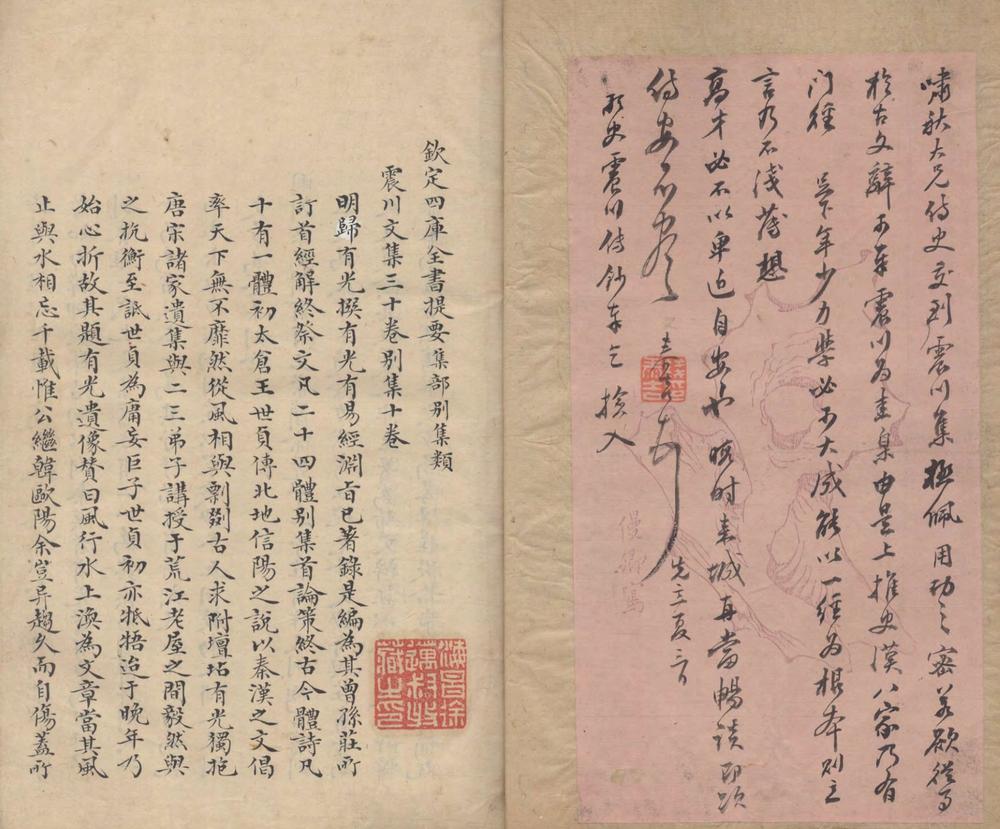 嘯秋大兄侍史交到震川集極佩用功之密若欲從事
於古文辭不專震川為圭臬由是上推史漢八家乃有
門徑吳下年少力學必有大成能以一經為根本則立
言乃不淺薄想
高才必不以卑近自安也晚時来城再當暢談即頌
侍安
形史震川傳鈔本乞撿入
先立夏三日
欽定四庫全書提要集部別集類
震川文集三十卷別集十卷
明歸有光撰有光有易經淵旨已著錄是編為其曾孫莊所
訂首經解終祭文凡二十四體別集首論策終古今體詩凡
十有一體初太倉王世貞傳北地信陽之說以秦漢之文倡
率天下無不靡然從風相與剽剟古人求附壇坫有光獨抱
唐宋諸家遺集與二三弟子講授于荒江老屋之間毅然與
之抗衡至詆世貞為庸妄巨子世貞初亦牴牾迨于晚年乃
始心折故其題有光遺像贊曰風行水上渙為文章當其風
止與水相忘千載惟公繼韓歐陽余豈异趨久而自傷蓋所
海昌徐
藏之印